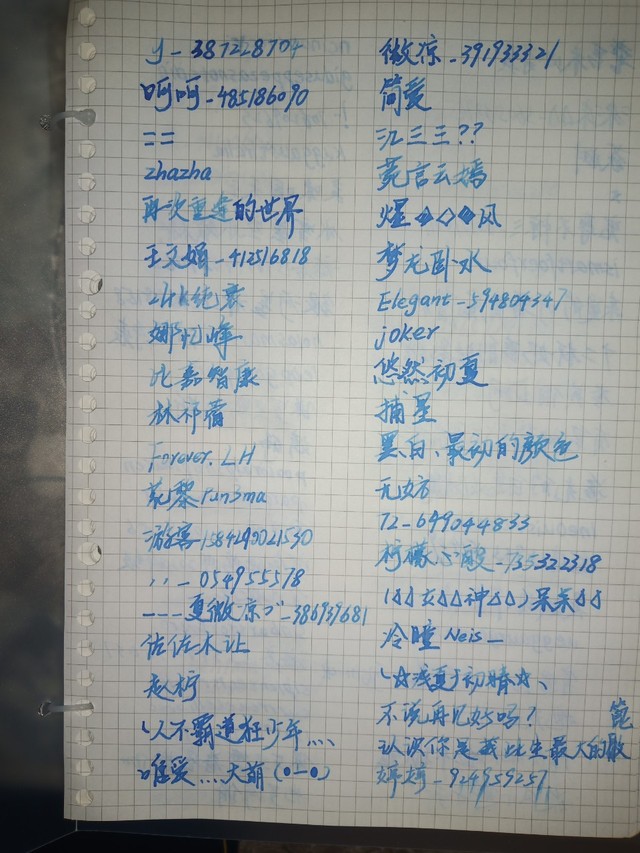 y-387228704
呵呵-485186090
==
zhazha
再次重逢的世界
王文娟-412516818
24K纯裹
娜忆峰
比嘉智康
林祁蓿
Forever.LH
蒙黎run3ma
游客1584290021530
、、-054955578
---夏微凉づ-386939681
佐佐木让
赵柠
ぺ人不霸道枉少年...、
唯爱...大萌(•-•)
微凉-391933321
简爱
汇三三??
莞言云嫣
煜◆◇◆风
梦龙卧水
Elegant-594804347
joker
悠然初夏
捕星
黑白、最初的颜色
无妨
72-649044833
柠檬心酸-735322318
(△△女△△神△△)呆呆△△
冷瞳Neis-
ぺ☆浅夏于初晴☆、
不说再见好吗?
认识你是我此生最大的骰
婷婷-924959251